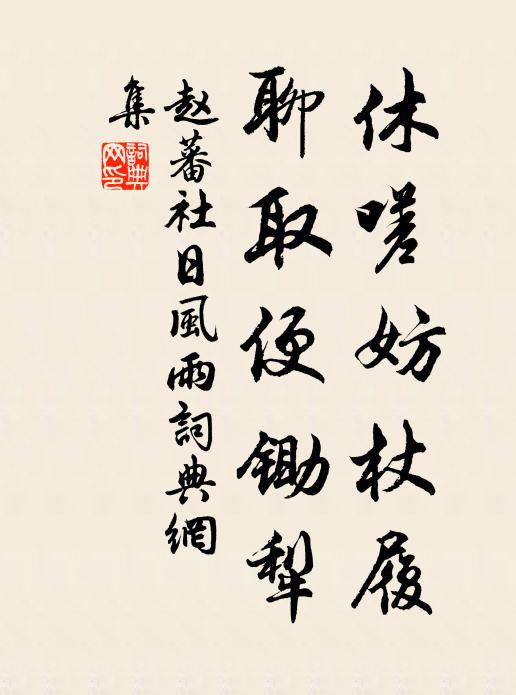 休嗟妨杖履
聊取便锄犁
赵蕃社日風雨詞典網
集
詞典網印